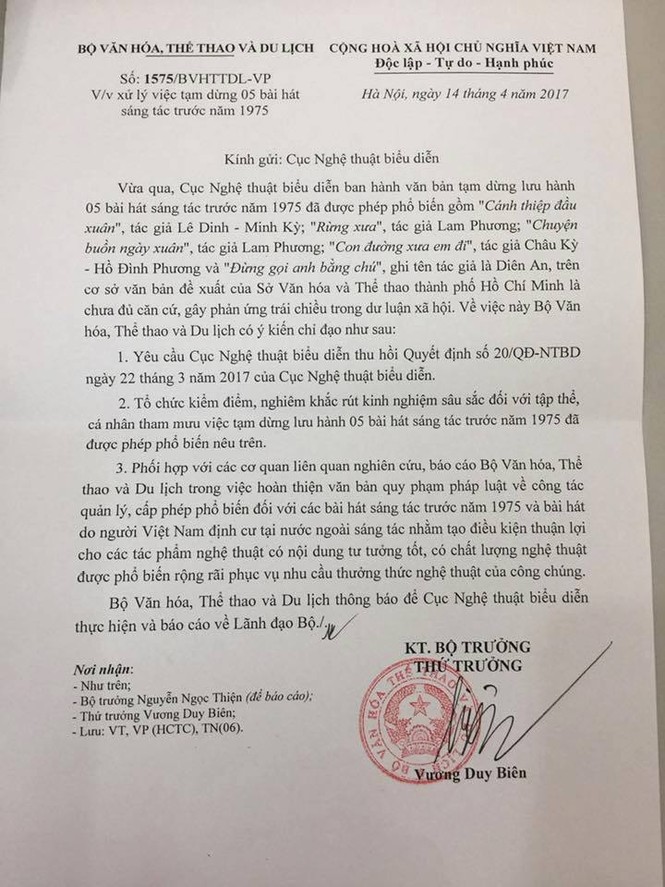 BỘ VĂN HÓA, THỂ THAO VÀ DU LỊCH
Số: 1575/BVHTTDL-VP
V/v xử lý việc tạm dừng 05 bài hát
sáng tác trước năm 1975
CỘNG HOÀ XÃ HỘI CHỦ NGHĨA VIỆT NAM
Độc lập - Tự do - Hạnh phúc
Hà Nội, ngày 14 tháng 4 năm 2017
Kính gửi: Cục Nghệ thuật biểu diễn
Vừa qua, Cục Nghệ thuật biểu diễn ban hành văn bản tạm dừng lưu hành
05 bài hát sáng tác trước năm 1975 đã được phép phổ biến gồm "Cánh thiệp đầu
xuân", tác giả Lê Dinh - Minh Kỳ; "Rừng xưa", tác giả Lam Phương; "Chuyện
buồn ngày xuân", tác giả Lam Phương; "Con đường xưa em đi", tác giả Châu Kỳ
- Hồ Đình Phương và "Đừng gọi anh bằng chú", ghi tên tác giả là Diên An, trên
cơ sở văn bản đề xuất của Sở Văn hóa và Thể thao thành phố Hồ Chí Minh là
chưa đủ căn cứ, gây phản ứng trái chiều trong dư luận xã hội. Về việc này Bộ Văn
hóa, Thể thao và Du lịch có ý kiến chỉ đạo như sau:
1. Yêu cầu Cục Nghệ thuật biểu diễn thu hồi Quyết định số 20/QĐ-NTBD
ngày 22 tháng 3 năm 2017 của Cục Nghệ thuật biểu diễn.
2. Tổ chức kiểm điểm, nghiêm khắc rút kinh nghiệm sâu sắc đối với tập thể,
cá nhân tham mưu việc tạm dừng lưu hành 05 bài hát sáng tác trước năm 1975 đã
được phép phổ biến nêu trên.
3. Phối hợp với các cơ quan liên quan nghiên cứu, báo cáo Bộ Văn hóa, Thể
thao và Du lịch trong việc hoàn thiện văn bản quy phạm pháp luật về công tác
quản lý, cấp phép phổ biến đối với các bài hát sáng tác trước năm 1975 và bài hát
do người Việt Nam định cư tại nước ngoài sáng tác nhằm tạo điều kiện thuận lợi
cho các tác phẩm nghệ thuật có nội dung tư tưởng tốt, có chất lượng nghệ thuật
được phổ biến rộng rãi phục vụ nhu cầu thưởng thức nghệ thuật của công chúng.
Bộ Văn hóa, Thể thao và Du lịch thông báo để Cục Nghệ thuật biểu diễn
thực hiện và báo cáo về Lãnh đạo Bộ./.
Nơi nhận:
- Như trên;
- Bộ trưởng Nguyễn Ngọc Thiện (để báo cáo);
- Thứ trưởng Vương Duy Biên;
- Lưu: VT, VP (HCTC), TN(06).
KT. BỘ TRƯỞNG
THỨ TRƯỞNG
BỘ VĂN HÓA THỂ THAO VÀ DU LỊCH
Vương Duy Biên